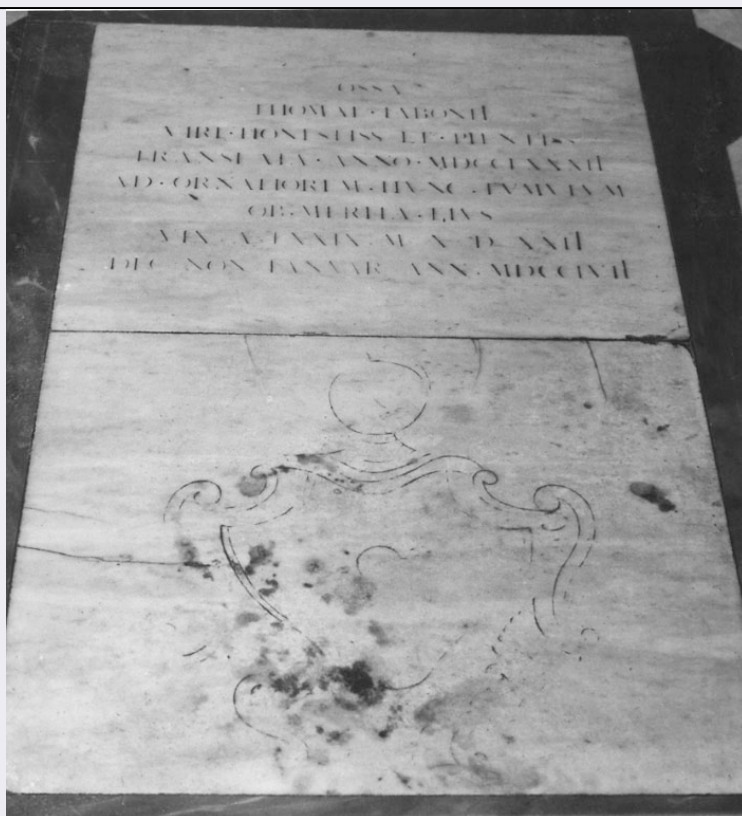 OSSA
THOMAE · TABONII
VIRI · HONESTISS · ET · PIENTISS
TRANSLATA · ANNO · MDCCLXXXII
AD · ORNATIOREM · HVNC · TVMVLVM
OB · MERITA · EIVS
VIX · A · LXXIX · M · X · D · XXII
DEC · NON · IANVAR · ANN · MDCCLVII